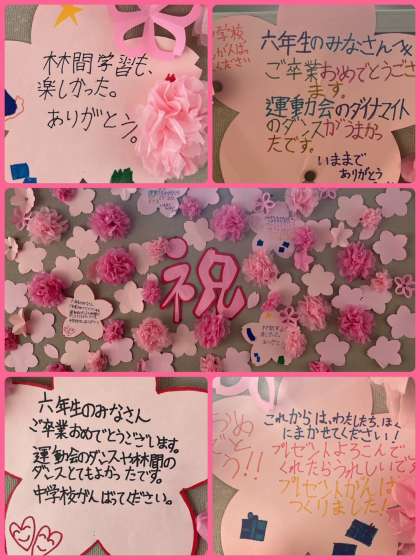 林間学習も、
楽しかった。
ありがとう。
六年生のみなさんへ
ご卒業おめでとうござい
ます。
運動会のダイナマイト
のダンスがうまかっ
たです。
いままで
ありがとう
祝
六年生のみなさん
ご卒業おめでとうございます。
運動会のダンスや林間の
ダンスとてもよかったです。
中学校がんばってください。
おめ
でと
う!!
これからは、わたしたち、ぼく
にまかせてください!
プレゼントよろこんで
くれたらうれしいです
プレゼントがんば
つくりました!